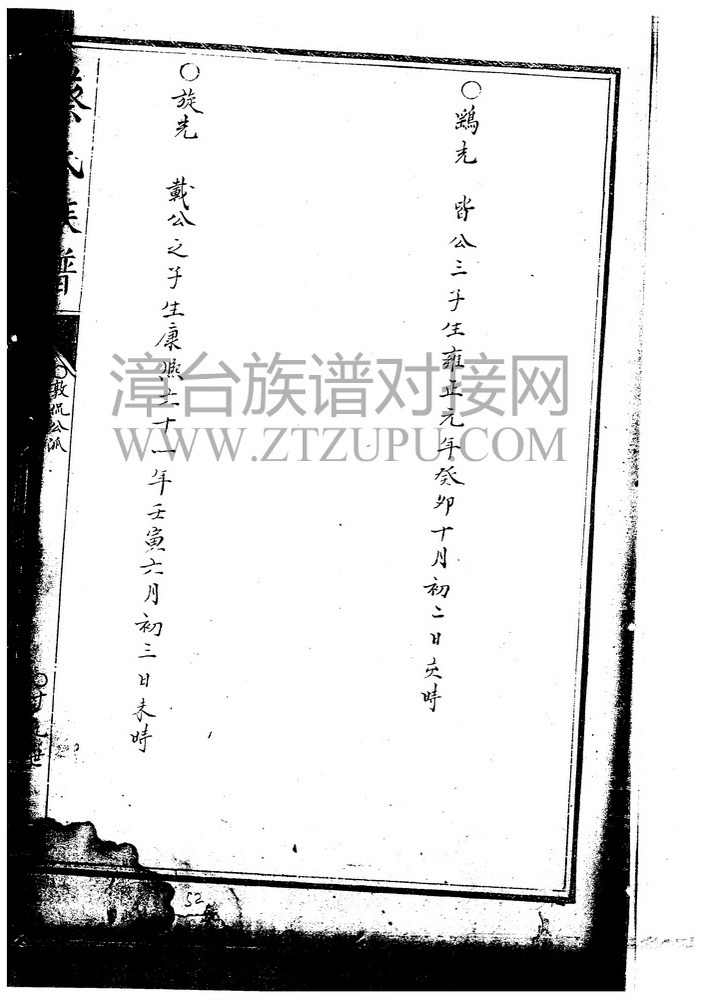 ○鶚先 皆公三子生雍正元年癸卯十月初二日亥時
○旋先 載公之子生康熙六十一年壬寅六月初三日未時
蔡氏族譜
○敦侃公派
世
52
漳台族谱对接网
WWW.ZTZUPU.COM